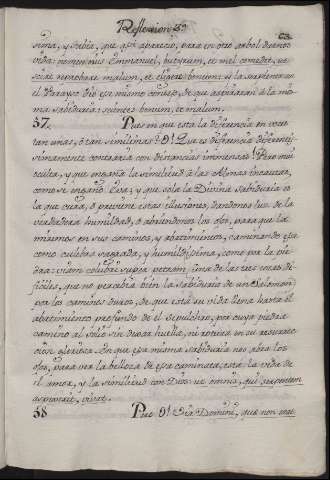 Reflexion 3ª
63
sima, y sabia, que assi aparezio, para en otro arbol darnos
vida: nomen eius Emmanuel, butyrum, et mel comedet, ut
sciat reprobare malum, et eligere bonum: y la serpiente en
el Parayso dio esse mismo consejo, de que aspiraran a la mis
ma sabiduria: scientes bonum, et malum.
37. Pues en que esta la diferencia en voces
tan unas, ò tan similes? O! Que es diferencia diferenti
simamente contraria con distancias immensas! Pero mui
oculta, y que engaña la similitud à las Almas incautas,
como se engañò Eva; y que sola la Divina Sabiduria es
la que cura, ò previene estas ilusiones, dandonos luz de la
verdadera humildad, ò abriendonos los ojos, para que la
miremos en sus caminos, y abatimientos, caminando essa
como culebra sagrada, y humildissima, como por la pie
dra: viam colubri super petram, una de las tres cosas di
ficiles, que no percebia bien la sabiduria de un Salomon
por los caminos duros, de que està su vida llena hasta el
abatimiento profundo de el sepulchro, por cuya piedra
caminò al salir sin dexar huella, ni rotura en su resurrec
cion gloriosa. En que essa misma sabiduria nos abra los
ojos, para ver la belleza de essa caminata, està la vida de
el amor, y la similitud con Dios: ut omnis, qui serpentem
aspexerit, vivat.
38 Pues O! Sea Domine, que non